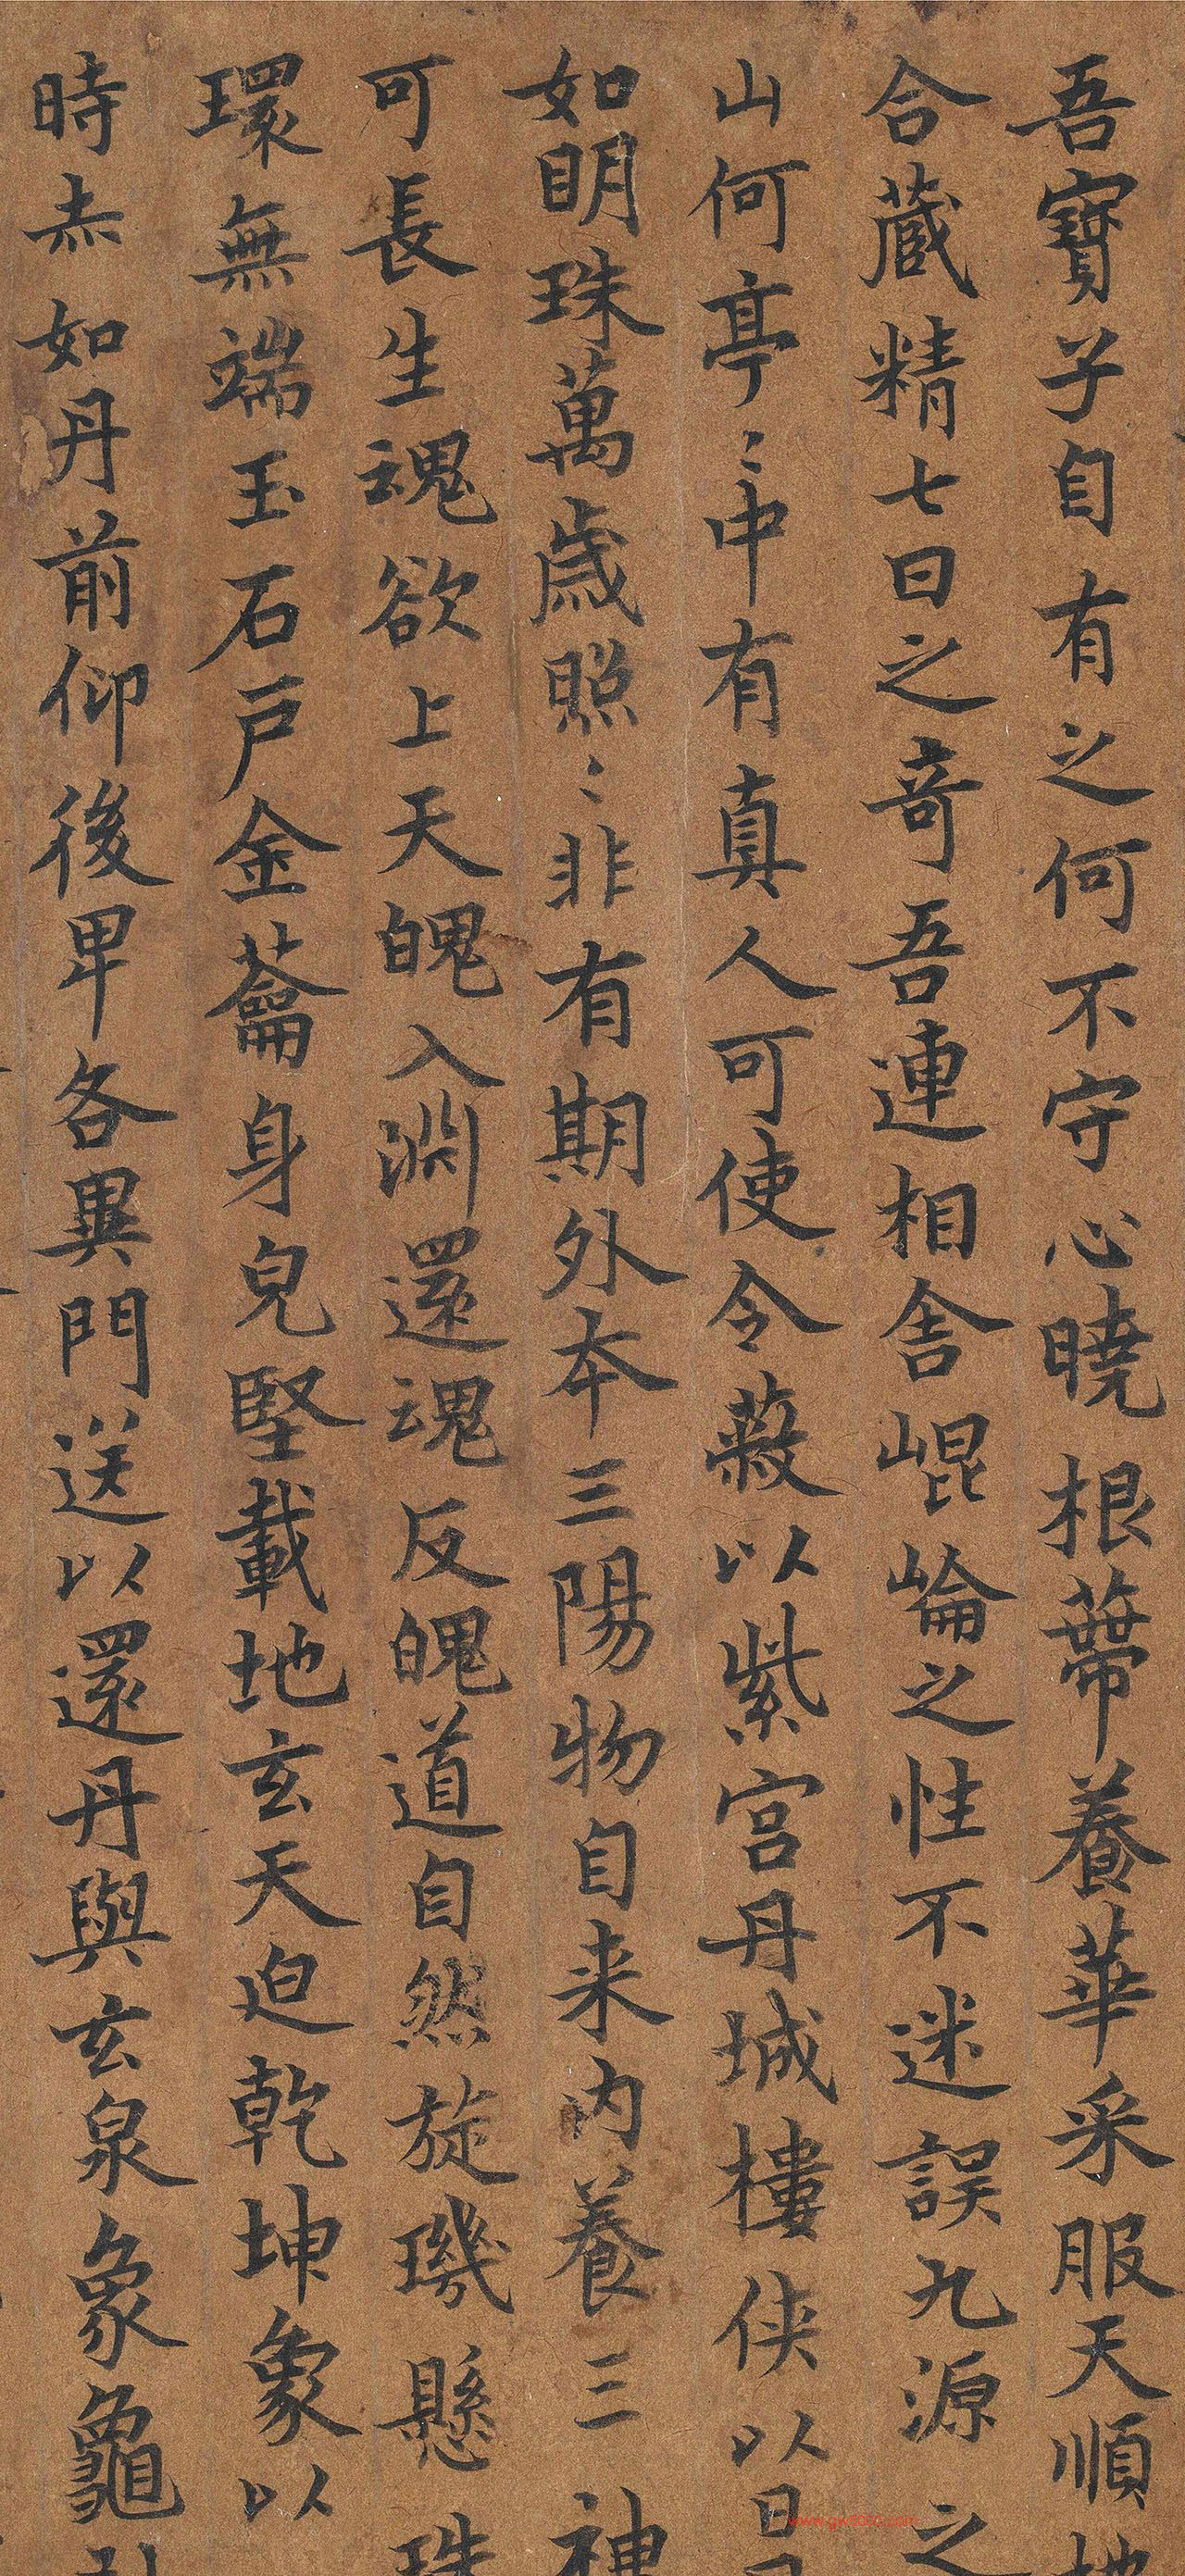 吾寶子自有之何不守心曉根蔕養華采服天順地
合藏精七日之奇吾連相舍崐崘之性不迷誤九源之
山何亭〻中有真人可使令蔽以紫宮丹城樓俠以日月
如明珠萬歲照〻非有期外本三陽物自来内養三神
可長生魂欲上天魄入淵還魂反魄道自然旋璣懸珠
環無端玉石戶金籥身皃堅載地玄天迫乾坤象以
時赤如丹前仰後卑各異門送以還丹與玄泉象龜引
www.gw5000.com